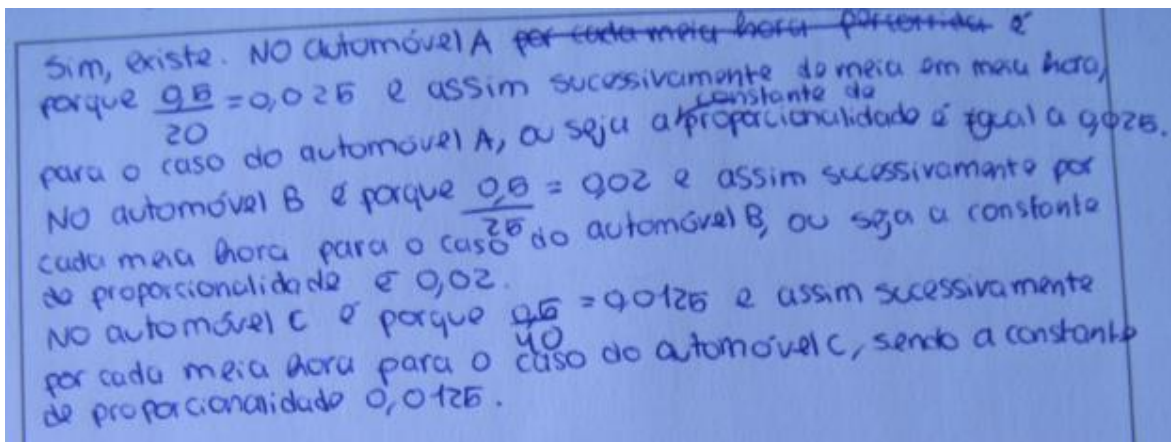 Sim, existe. No automóvel A ~~por cada meia hora percorrida~~ é
porque 0,5/20 = 0,025 e assim sucessivamente de meia em meia hora,
para o caso do automóvel A, ou seja a constante de proporcionalidade é igual a 0,025.
No automóvel B é porque 0,5/25 = 0,02 e assim sucessivamente por
cada meia hora para o caso do automóvel B, ou seja a constante
de proporcionalidade é 0,02.
No automóvel C é porque 0,5/40 = 0,0125 e assim sucessivamente
por cada meia hora para o caso do automóvel C, sendo a constante
de proporcionalidade 0,0125.